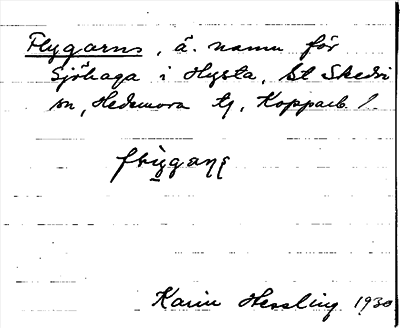 Flygarns, ä. namn för
Sjöhaga i Hysta, St Skedvi
sn, Hedemora tg, Kopparb l.
Karin Hessling 1930